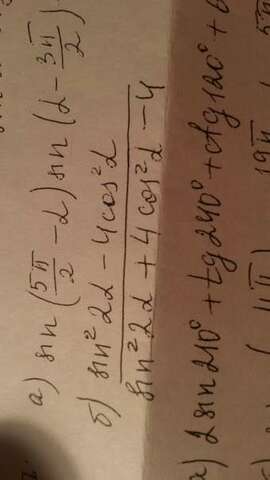 а) sin (5π/2 - α) sin (α - 3π/2)
б) sin²2α - 4cos²α / sin²2α + 4cos²α - 4
а) 2 sin 210° + tg 240° + ctg 120° +